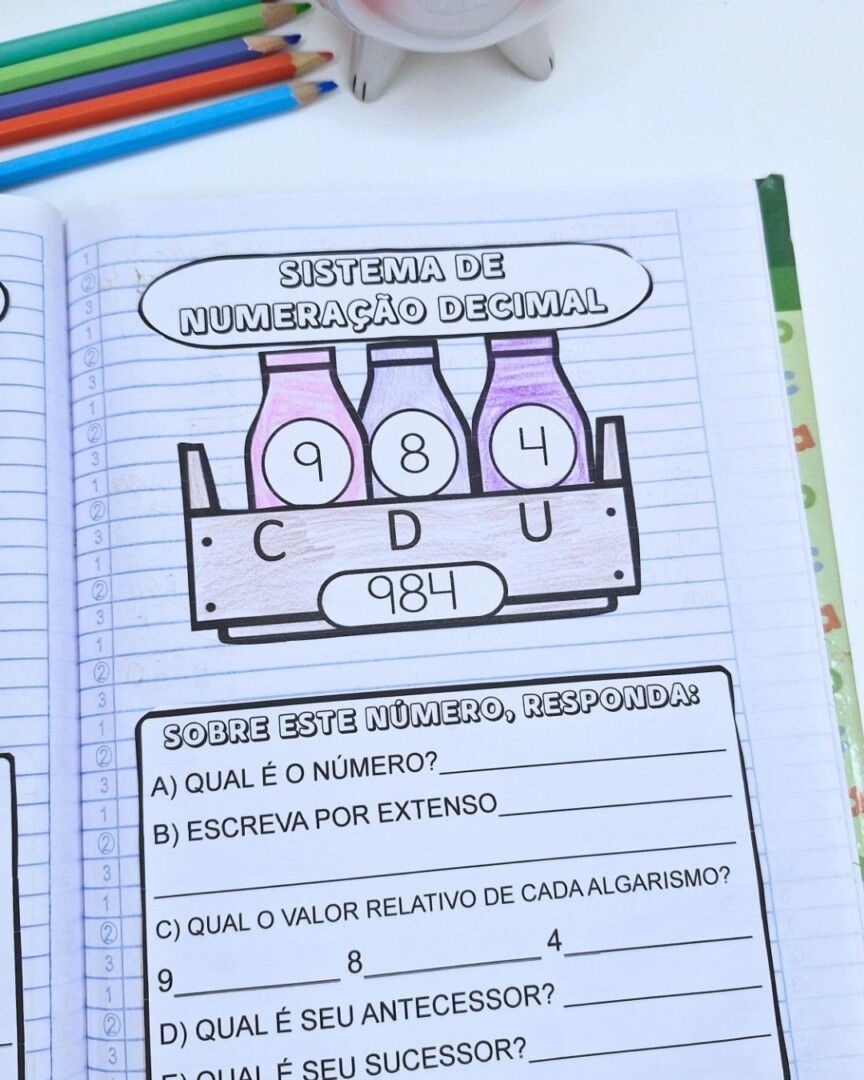 SISTEMA DE
NUMERAÇÃO DECIMAL
9 8 4
C D U
984
SOBRE ESTE NÚMERO, RESPONDA:
A) QUAL É O NÚMERO?
B) ESCREVA POR EXTENSO
C) QUAL O VALOR RELATIVO DE CADA ALGARISMO?
9 8 4
D) QUAL É SEU ANTECESSOR?
E) QUAL É SEU SUCESSOR?